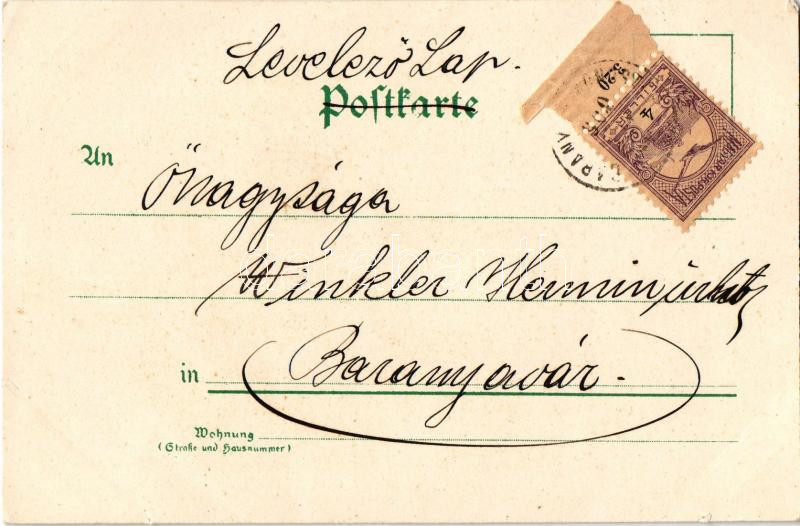 Levelező Lap.
Postkarte
An
Őnagysága
Winkler Hermin
in Baranyavár.
Wohnung
(Straße und Hausnummer)
4
20